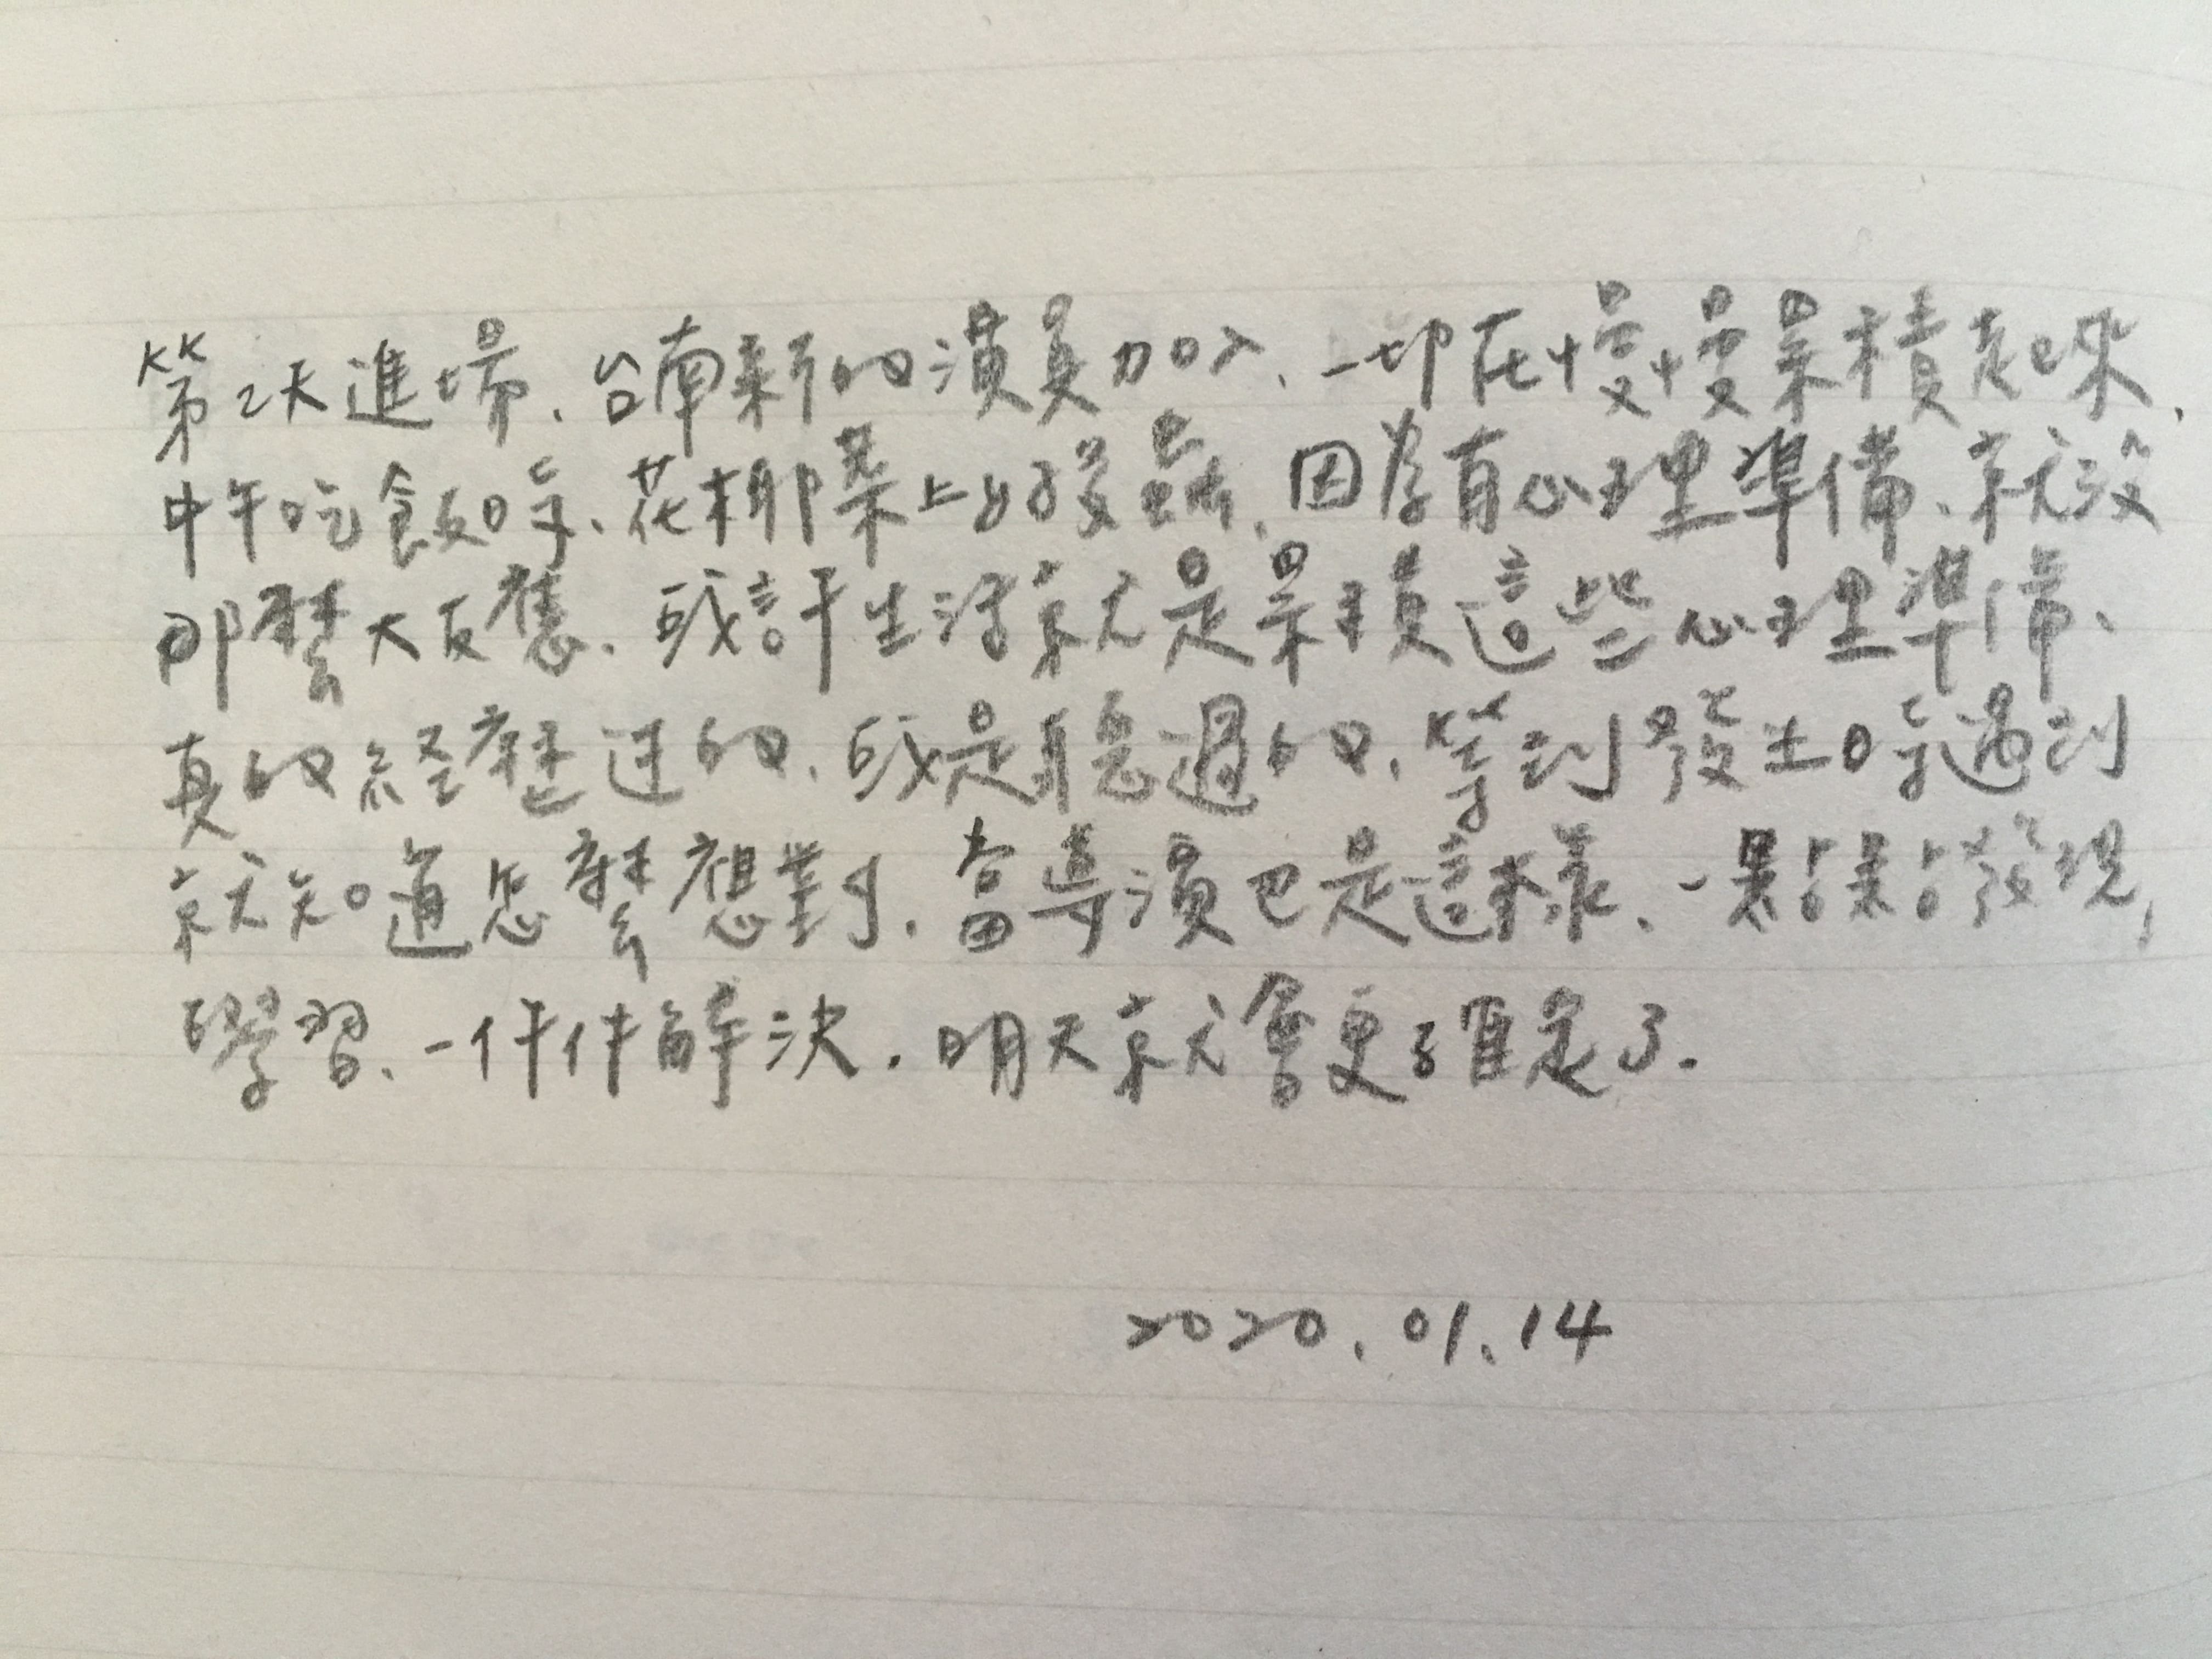 第2天進場、台南新的演員加入、一切在慢慢累積起來、
中午吃飯時、花椰菜上好多蟲、因為有心理準備、就沒
那麼大反應、或許生活就是累積這些心理準備、
真的經歷過的、或是聽過的、等到發生時遇到
就知道怎麼應對。當導演也是這樣、一點點發現,
學習、一件件解決。明天就會更確定了。
2020.01.14